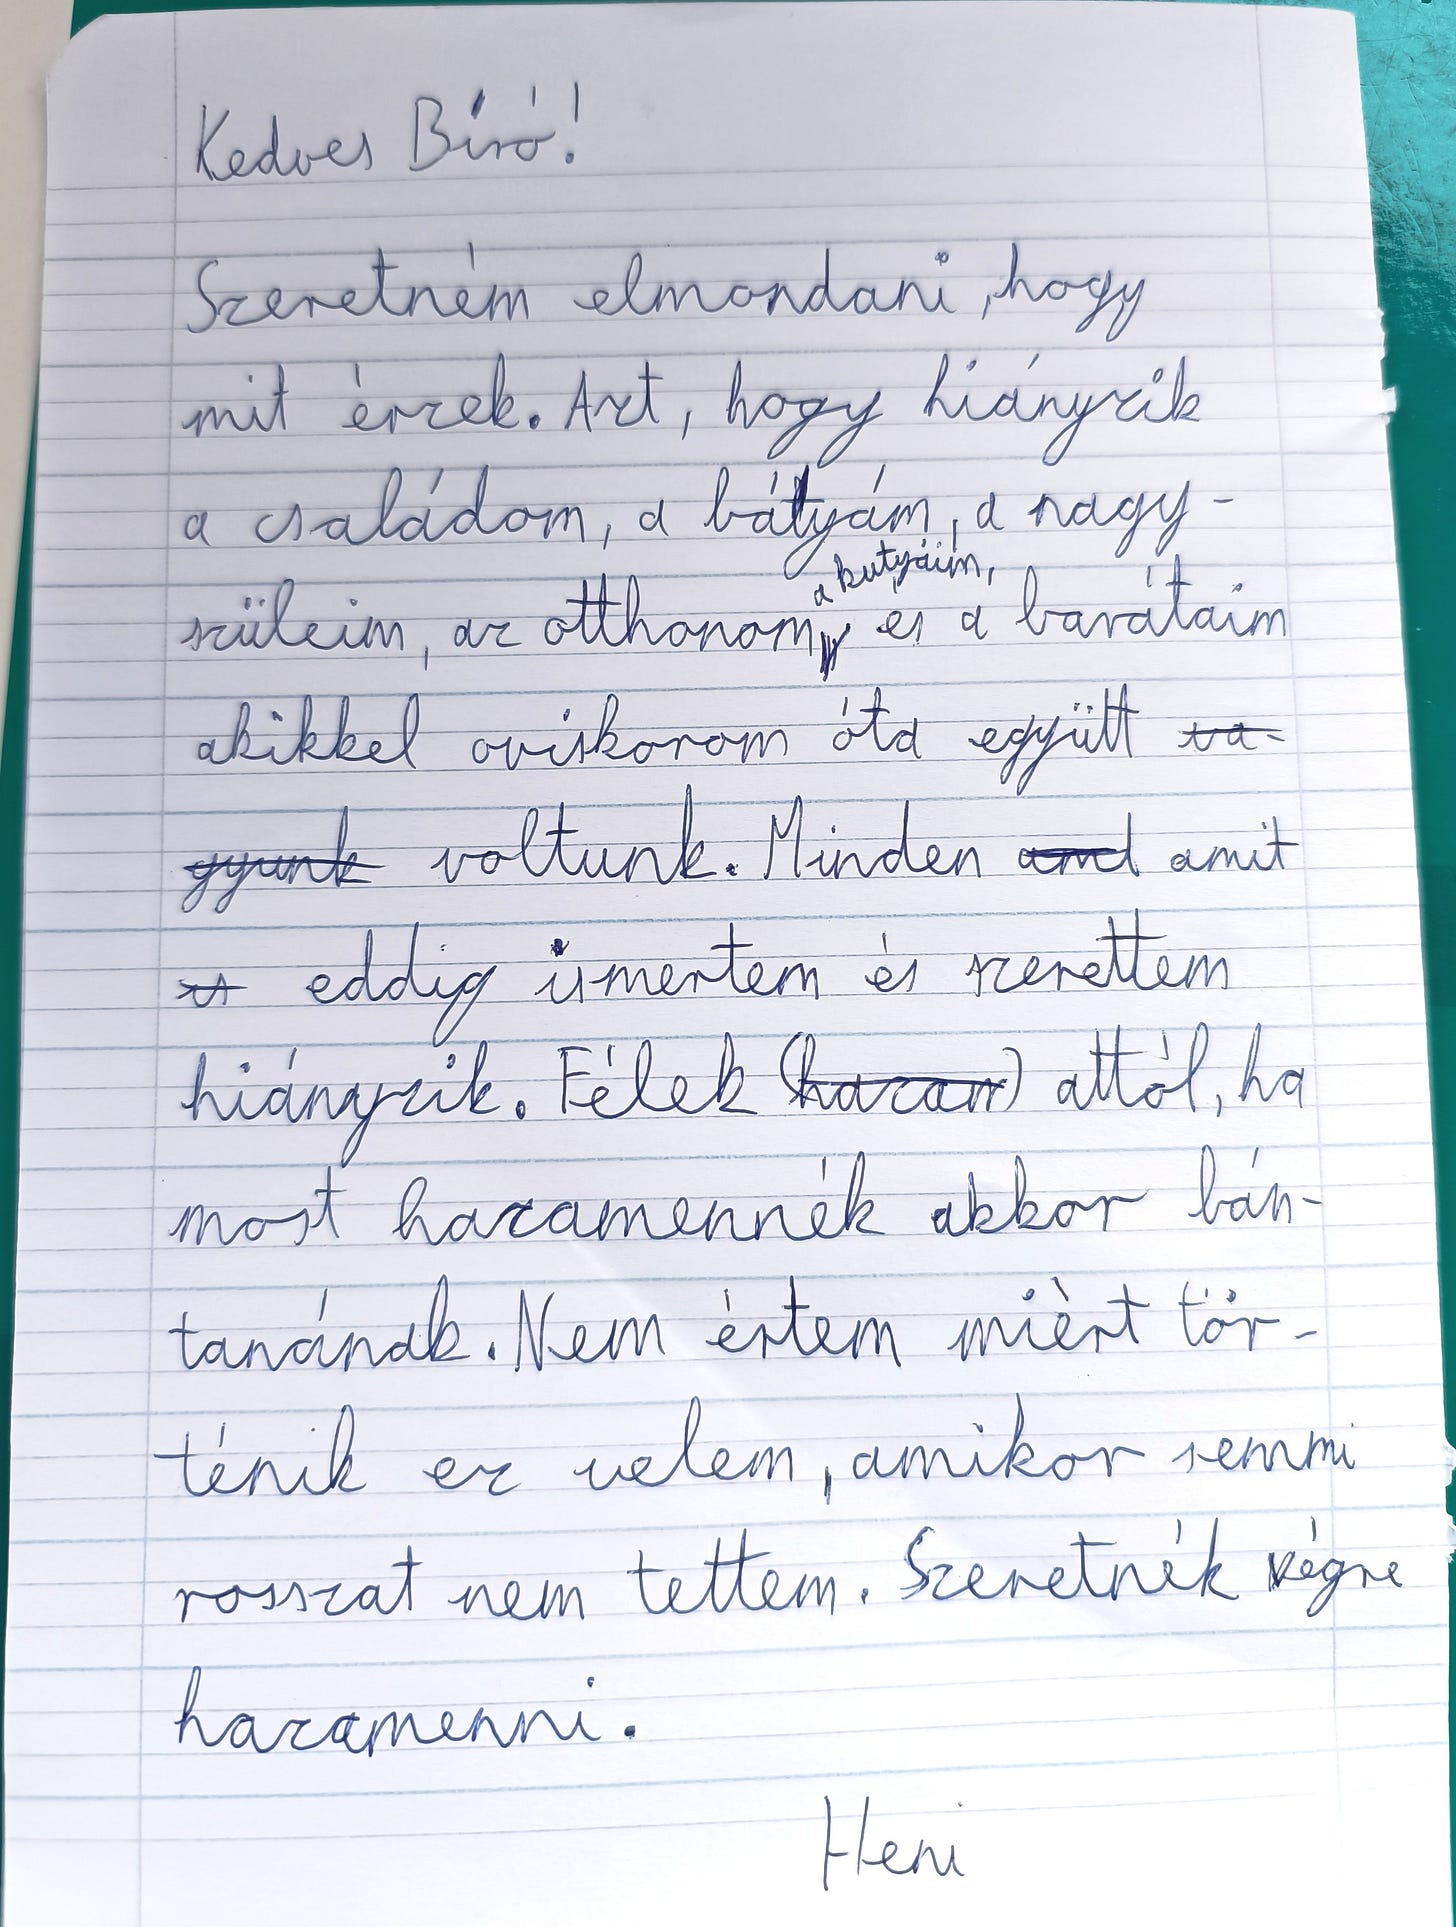 Kedves Bíró!
Szeretném elmondani, hogy
mit érzek. Azt, hogy hiányzik
a családom, a bátyám, a nagy-
szüleim, az otthonom, a kutyáim, és a barátaim
akikkel oviskorom óta együtt va-
gyunk voltunk. Minden amit
eddig ismertem és szerettem
hiányzik. Félek (hazam) attól, ha
most hazamennék akkor bán-
tanának. Nem értem miért tör-
ténik ez velem, amikor semmi
rosszat nem tettem. Szeretnék végre
hazamenni.
Heni